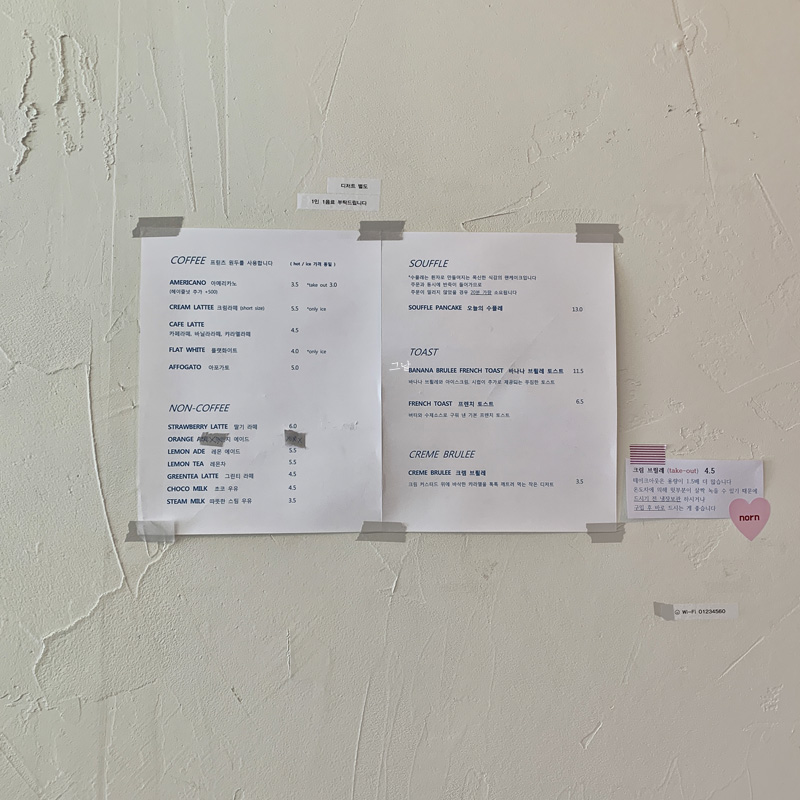 디저트 별도
1인 1음료 부탁드립니다
COFFEE 프릳츠 원두를 사용합니다 ( hot / ice 가격 동일 )
AMERICANO 아메리카노 3.5 *take out 3.0
(헤이즐넛 추가 +500)
CREAM LATTEE 크림라떼 (short size) 5.5 *only ice
CAFE LATTE
카페라떼, 바닐라라떼, 카라멜라떼 4.5
FLAT WHITE 플랫화이트 4.0 *only ice
AFFOGATO 아포가토 5.0
NON-COFFEE
STRAWBERRY LATTE 딸기 라떼 6.0
ORANGE 에이드
LEMON ADE 레몬 에이드 5.5
LEMON TEA 레몬차 5.5
GREENTEA LATTE 그린티 라떼 4.5
CHOCO MILK 초코 우유 4.5
STEAM MILK 따뜻한 스팀 우유 3.5
SOUFFLE
*수플레는 흰자로 만들어지는 폭신한 식감의 팬케이크입니다
주문과 동시에 반죽이 들어가므로
주문이 밀리지 않았을 경우 20분 가량 소요됩니다
SOUFFLE PANCAKE 오늘의 수플레 13.0
TOAST
그냥
BANANA BRULEE FRENCH TOAST 바나나 브륄레 토스트 11.5
바나나 브륄레와 아이스크림, 시럽이 추가로 제공되는 푸짐한 토스트
FRENCH TOAST 프렌치 토스트 6.5
버터와 수제소스로 구워 낸 기본 프렌치 토스트
CREME BRULEE
CREME BRULEE 크렘 브륄레 3.5
크림 커스터드 위에 바삭한 카라멜을 톡톡 깨트려 먹는 작은 디저트
크렘 브륄레 (take-out) 4.5
테이크아웃은 용량이 1.5배 더 많습니다
온도차에 의해 윗부분이 살짝 녹을 수 있기 때문에
드시기 전 냉장보관 하시거나
구입 후 바로 드시는 게 좋습니다
norn
Wi-Fi 01234560